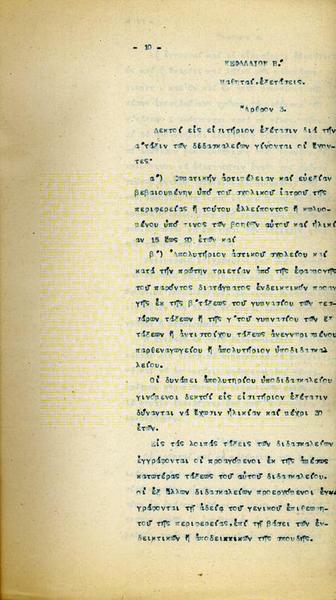 - 10 -
ΚΕΦΑΛΑΙΟΝ Β.'
Μαθηταί.Εξετάσεις.
Ἄρθρον 3.
Δεκτοί εἰς εἰσιτήριον ἐξέτασιν διά τήν
α'τάξιν τῶν διδασκαλείων γίνονται οἱ ἔχον-
τες·
α') Σωματικήν ἀρτιμέλειαν καί εὐεξίαν
βεβαιουμένην ὑπό τοῦ σχολικοῦ ἰατροῦ τῆς
περιφερείας ἤ τούτου ἐλλείποντος ἤ κωλυο-
μένου ὑπό τινος τῶν βοηθῶν αὐτοῦ καί ἡλικί-
αν 15 ἕως 20 ἐτῶν καί
β') Ἀπολυτήριον ἀστικοῦ σχολείου καί
κατά τήν πρώτην τριετίαν ὑπό τῆς ἐφαρμογῆς
τοῦ παρόντος διατάγματος ἐνδεικτικόν προαγω-
γῆς ἐκ τῆς β'τάξεως τοῦ γυμνασίου τῶν τεσ-
σάρων τάξεων ἤ τῆς γ'τοῦ γυμνασίου τῶν ἕξ
τάξεων ἤ ἀντιστοίχου τάξεως ἀνεγνωρισμένου
παρθεναγωγείου ἤ ἀπολυτήριον ὑποδιδασκα-
λείου.
Οἱ δυνάμει ἀπολυτηρίου ὑποδιδασκαλείου
γινόμενοι δεκτοί εἰς εἰσιτήριον ἐξέτασιν
δύνανται νά ἔχωσιν ἡλικίαν καί μέχρι 30
ἐτῶν.
Εἰς τάς λοιπάς τάξεις τῶν διδασκαλείων
ἐγγράφονται οἱ προαγόμενοι ἐκ τῆς ἀμέσως
κατωτέρας τάξεως τοῦ αὐτοῦ διδασκαλείου.
οἱ ἐξ ἄλλων διδασκαλείων προερχόμενοι ἐγγ-
ράφονται τῇ ἀδείᾳ τοῦ γενικοῦ ἐπιθεωρη-
τοῦ τῆς περιφερείας,ἐπί τῇ βάσει τῶν ἐν-
δεικτικῶν ἤ ἀποδεικτικῶν τῆς σπουδῆς.